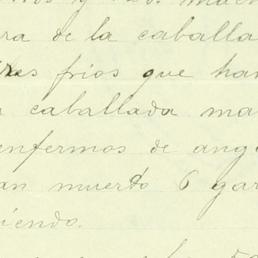 ra de la caballa
res frios que han
caballada ma
enfermos de ang
an muerto 6 gar
iendo.